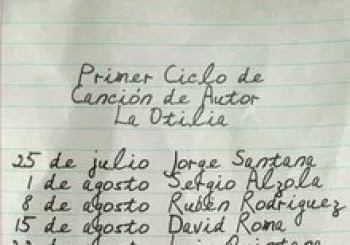 Primer Ciclo de
Canción de Autor
La Otilia
25 de julio Jorge Santana
1 de agosto Sergio Alzola
8 de agosto Rubén Rodríguez
15 de agosto David Roma